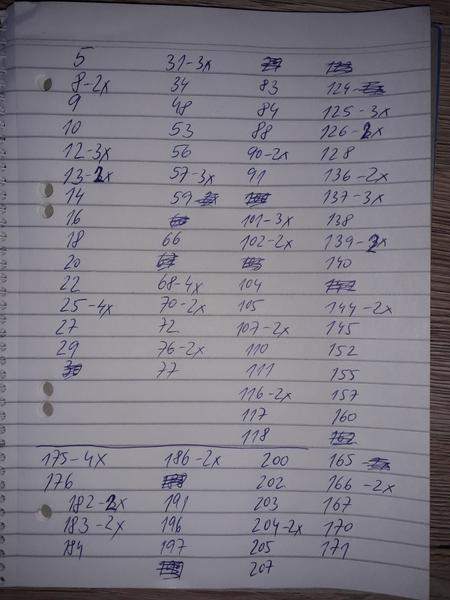 5 31-3x
8-2x 34 83 124
9 48 84 125-3x
10 53 88 126-2x
12-3x 56 90-2x 128
13-2x 57-3x 91 136-2x
14 59 137-3x
16 101-3x 138
18 66 102-2x 139-2x
20 140
22 68-4x 104
25-4x 70-2x 105 144-2x
27 72 107-2x 145
29 76-2x 110 152
77 111 155
116-2x 157
117 160
118
175-4x 186-2x 200 165
176 202 166-2x
182-2x 191 203 167
183-2x 196 204-2x 170
184 197 205 171
207